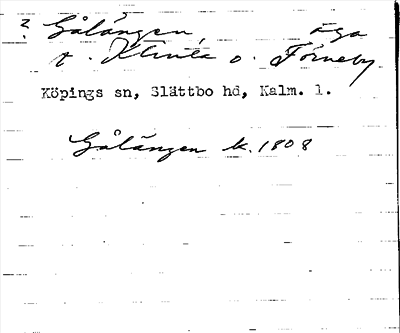 ? Gålängen, äga
t. Klinta o. Törneby
Köpings sn, Slättbo hd, Kalm. l.
Gålängen k. 1808